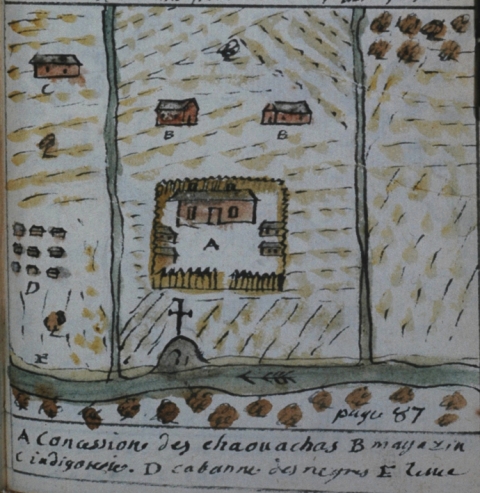 C
B B
A
D
E
page 87
A Concession des chaouachas B magazin
C indigoterie. D cabanne des negres E